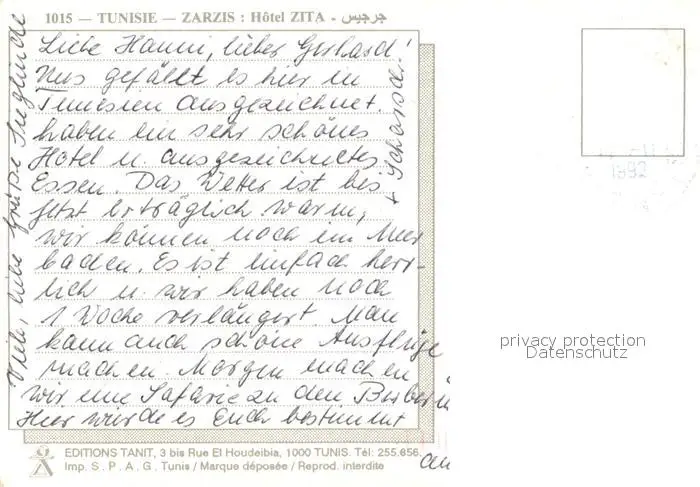 1015 — TUNISIE — ZARZIS : Hôtel ZITA - جرجيس
Liebe Hanni, lieber Gerhard!
Uns gefällt es hier in
Tunesien ausgezeichnet.
haben ein sehr schönes
Hotel u. ausgezeichnetes
Essen. Das Wetter ist bis
jetzt erträglich warm,
wir können noch im Meer
baden. Es ist einfach herr-
lich u. wir haben noch
1 Woche verlängert. Man
kann auch schöne Ausflüge
machen. Morgen machen
wir eine Safarie zu den Berbern
Hier würde es Euch bestimmt
Viele, liebe Grüße Sieglinde
1992
privacy protection
Datenschutz
EDITIONS TANIT, 3 bis Rue El Houdeibia, 1000 TUNIS. Tél: 255.656.
Imp. S. P. A. G. Tunis / Marque déposée / Reprod. interdite